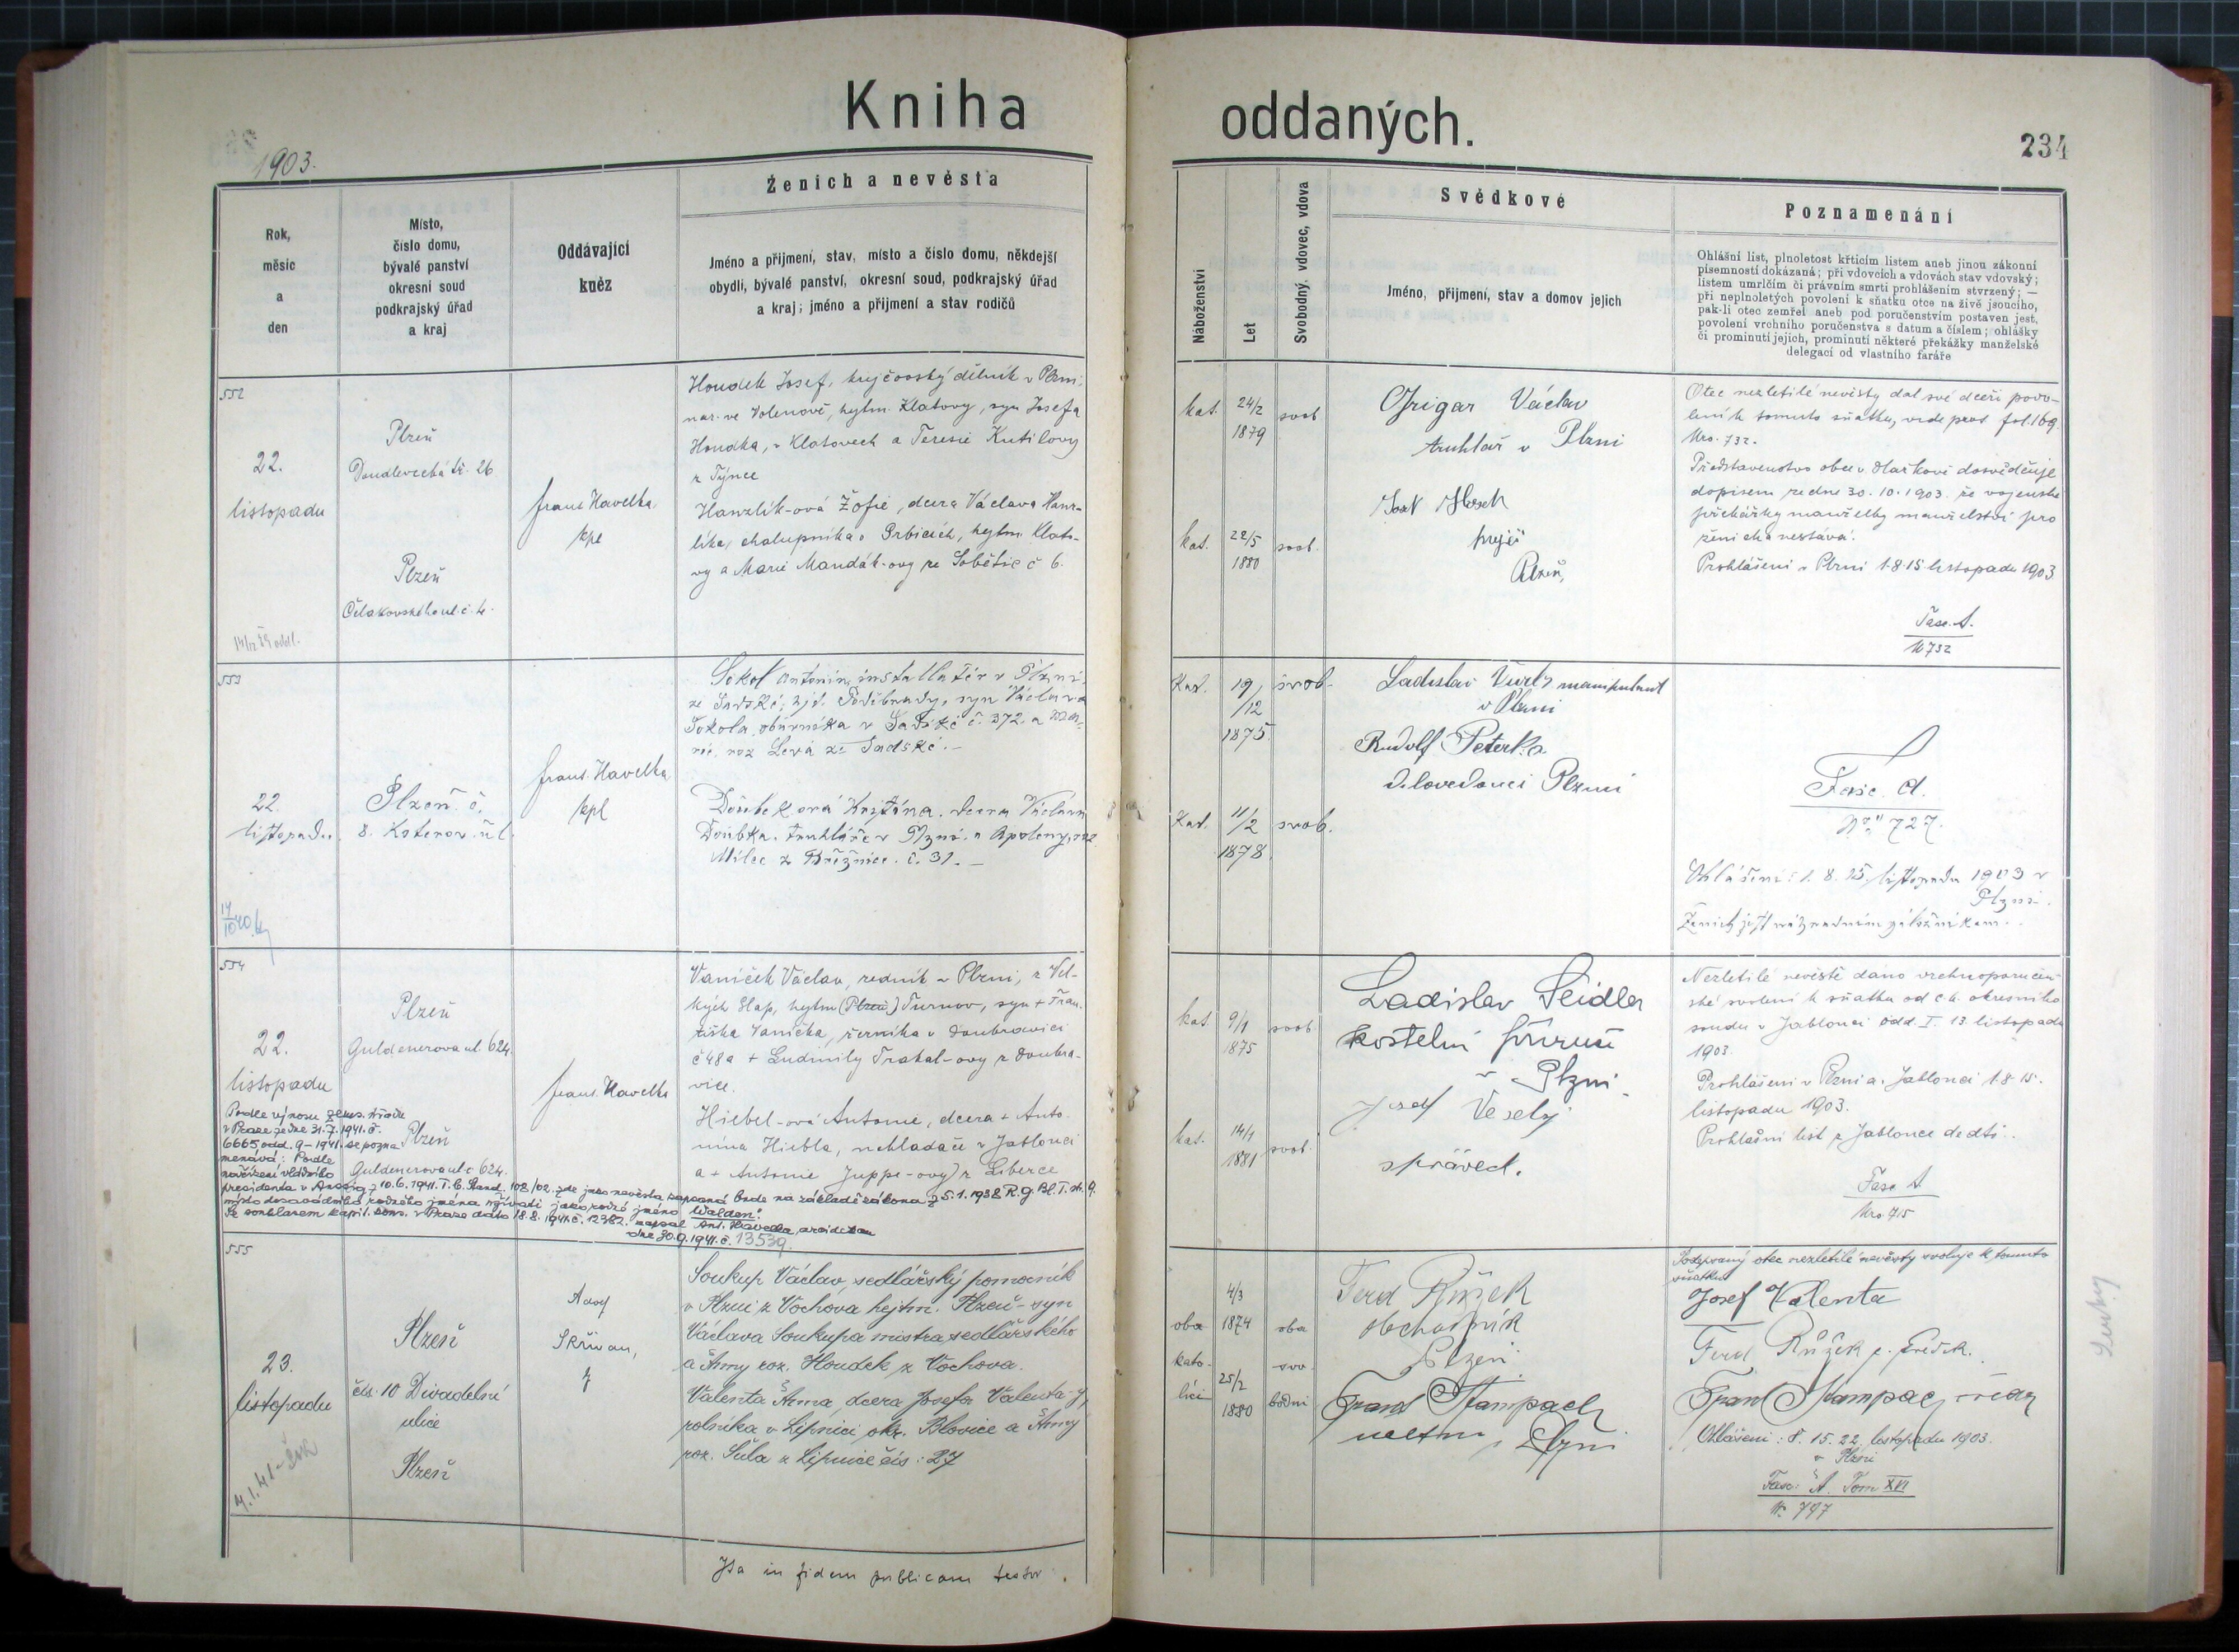 Kniha oddaných.
234
1903.
Rok,
měsíc
a
den
Místo,
číslo domu,
bývalé panství
okresní soud
podkrajský úřad
a kraj
Oddávající
kněz
Ženich a nevěsta
Jméno a přijmení, stav, místo a číslo domu, někdejší
obydlí, bývalé panství, okresní soud, podkrajský úřad
a kraj; jméno a přijmení a stav rodičů
Náboženství
Let
Svobodný, vdovec, vdova
Svědkové
Jméno, přijmení, stav a domov jejich
Poznamenání
Ohlášní list, plnoletost křticím listem aneb jinou zákonní
písemností dokázaná; při vdovcích a vdovách stav vdovský;
listem umrlčím či právním smrti prohlášením stvrzený; —
při neplnoletých povolení k sňatku otce na živě jsoucího,
pak-li otec zemřel aneb pod poručenstvím postaven jest,
povolení vrchního poručenstva s datum a číslem; ohlášky
či prominutí jejich, prominutí některé překážky manželské
delegací od vlastního faráře
552
22.
listopadu
Plzeň
Doudlevecká tř. 26
Plzeň
Čelakovského ul. č. 4.
Frant. Havelka
kpl
Houdek Josef, krejčovský dělník v Plzni,
nar. ve Volenově, hejtm. Klatovy, syn Josefa
Houdka, v Klatovech a Teresie Kutilovy
z Týnce
Hanzlík-ová Žofie, dcera Václava Hanz-
líka, chalupníka v Grbicích, hejtm. Klato-
vy a Marie Mandák-ovy ze Soběšic č 6.
kat. 24/2 1879 svob
kat. 22/5 1880 svob.
Grigar Václav
truhlář v Plzni
krejčí
Plzeň,
Otec nezletilé nevěsty dal své dceři povo-
lení k tomuto sňatku, vide prot. fol. 169
Nro. 732.
Představenstvo obce v dosvědčuje
dopisem ze dne 30. 10. 1903 že vojenské
překážky manželství pro
ženicha nestává.
Prohlášení v Plzni 1. 8. 15 listopadu 1903
Fasc. A.
N 732
553
22.
listopadu.
Plzeň. č.
8. Koterov. ul.
Frant. Havelka
kpl
Sokol Antonín, installatér v Plzni,
ze Sadské, hejt. Poděbrady, syn Václava
Sokola, obuvníka v Sadské č. 372. a Ma-
rie, roz Levá ze Sadské. —
Doubeková Kristina. dcera Václava
Doubka. truhláře v Plzni. a Apoleny, roz
Milec z Březnice. č. 31. —
Kat. 19/12 1875. svob.
Kat. 11/2 1878 svob.
Ladislav manipulant
v Plzni
Rudolf Peterka
Plzni
Fasc. A.
Nro. 727.
Ohlášení: 1. 8. 15. listopadu 1903 v
Plzni.
Ženich jest náhradním záložníkem.
554
22.
listopadu
Plzeň
Guldenerova ul. 624.
Plzeň
Guldenerova ul. č 624.
Frant. Havelka
Vaníček Václav, řezník v Plzni, z Vel-
kých Hap, hejtm (Plzeň) Turnov, syn + Fran-
tiška Vaníčka, řezníka v Doubravici
č 48 a + Ludmily Trakal-ovy z Doubra-
vice.
Hiebel-ová Antonie, dcera + Anto-
nína Hiebla, nakladače v Jablonci
a + Antonie Juppe-ovy z Liberce
Podle výnosu zems. úřadu
v Praze ze dne 31. 7. 1941. č.
6665 odd. 9-1941. se pozna-
menává: Podle
nařízení vládního
presidenta v Aussig z 10. 6. 1941. I. b. Stand. 108/02. zde jako nevěsta zapsaná bude na základě zákona z 5. 1. 1938 R. G. Bl. I. str. 9.
místo dosavadního rodného jména užívati jako rodné jméno "Walden".
Se souhlasem kapit. kons. v Praze dato 18. 8. 1941. č. 12382. zapsal Ant. Havelka, arciděkan
dne 30. 9. 1941. č. 13539.
kat. 9/1 1875 svob
kat. 14/1 1881 svob.
Ladislav Seidler
kostelní
v Plzni.
Josef Veselý
Nezletilé nevěstě dáno vrchnoporučen-
ské svolení k sňatku od c. k. okresního
soudu v Jablonci odd. I. 13. listopadu
1903.
Prohlášení v Plzni a. Jablonci 1. 8. 15.
listopadu 1903.
Prohlašní list z Jablonce dedtô..
Fasc. A
Nro. 715
555
23.
listopadu
Plzeň
čís. 10 Divadelní
ulice
Plzeň
Adolf
Skřivan,
Soukup Václav, sedlářský pomocník
v Plzni z Vochova hejtm. Plzeň - syn
Václava Soukupa mistra sedlářského
a Anny roz. Houdek z Vochova.
Valenta Anna, dcera Josefa Valenta-y,
rolníka v Lipnici, okr. Blovice a Anny
roz. Šula z Lipnice čís: 27
oba kato- líci 4/3 1874 25/2 1880 oba svo- bodni
Ferd Růžek
obchodník
Plzeň.
Frant Štampach
Plzni
Podepsaný otec nezletilé nevěsty svoluje k tomuto
sňatku
Josef Valenta
Ferd Růžek s. svědek.
Frant Štampach svědek
Ohlášení: 8. 15. 22. listopadu 1903.
v Plzni
Fasc: A. Tom XVI
Nr 797
Ita in fidem publicam testor.